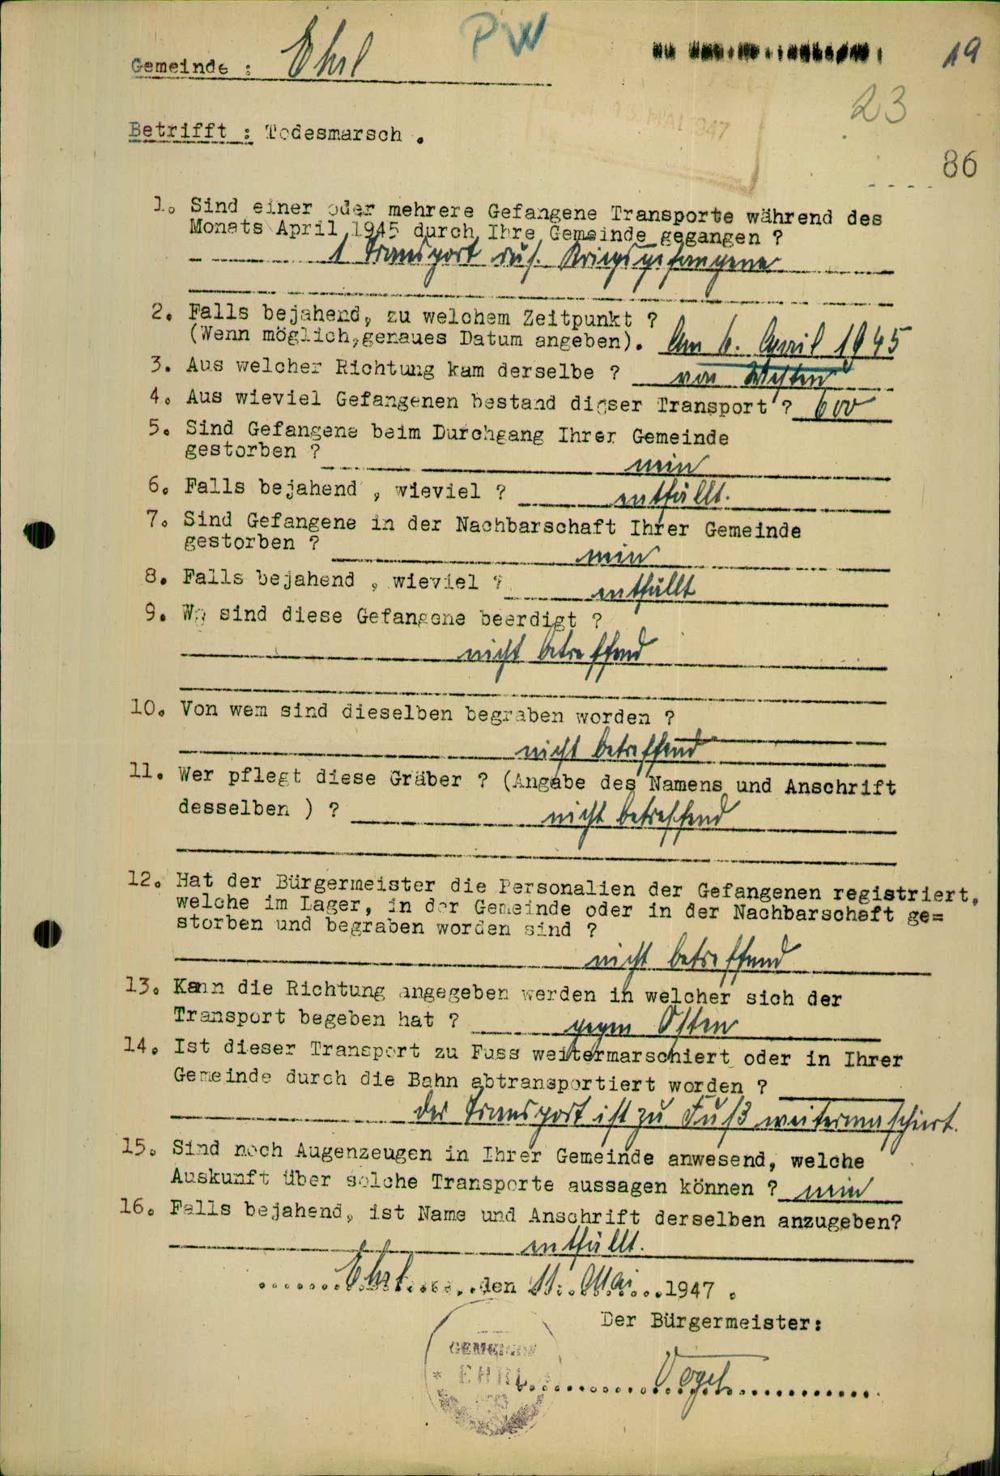 PW
19
Gemeinde : Ehrl
23
MAI 1947
Betrifft : Todesmarsch .
86
1. Sind einer oder mehrere Gefangene Transporte während des
Monats April 1945 durch Ihre Gemeinde gegangen ?
1 Transport rus. Kriegsgefangene
2. Falls bejahend, zu welchem Zeitpunkt ?
(Wenn möglich,genaues Datum angeben). Am 6. April 1945
3. Aus welcher Richtung kam derselbe ? von Westen
4. Aus wieviel Gefangenen bestand dieser Transport ? 600
5. Sind Gefangene beim Durchgang Ihrer Gemeinde
gestorben ? nein
6. Falls bejahend , wieviel ? entfällt.
7. Sind Gefangene in der Nachbarschaft Ihrer Gemeinde
gestorben ? nein
8. Falls bejahend , wieviel ? entfällt
9. Wo sind diese Gefangene beerdigt ?
nicht betreffend
10. Von wem sind dieselben begraben worden ?
nicht betreffend
11. Wer pflegt diese Gräber ? (Angabe des Namens und Anschrift
desselben ) ? nicht betreffend
12. Hat der Bürgermeister die Personalien der Gefangenen registriert,
welche im Lager, in der Gemeinde oder in der Nachbarschaft ge=
storben und begraben worden sind ?
nicht betreffend
13. Kann die Richtung angegeben werden in welcher sich der
Transport begeben hat ? gegen Osten
14. Ist dieser Transport zu Fuss weitermarschiert oder in Ihrer
Gemeinde durch die Bahn abtransportiert worden ?
der Transport ist zu Fuß weitermaschiert.
15. Sind noch Augenzeugen in Ihrer Gemeinde anwesend, welche
Auskunft über solche Transporte aussagen können ? nein
16. Falls bejahend, ist Name und Anschrift derselben anzugeben?
entfällt.
Ehrl, den 11. Mai 1947 .
Der Bürgermeister:
GEMEINDE
* EHRL *
Vogel